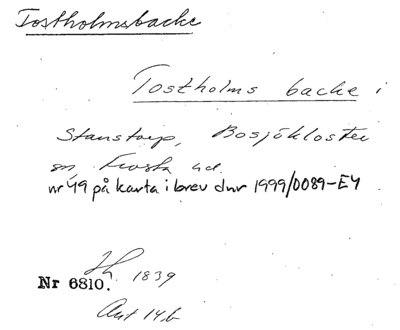 Tostholmsbacke
Tostholms backe i
Stanstorp, Bosjökloster
sn, Frosta hd.
nr 49 på karta i brev dnr 1999/0089-E4
Jh 1839
Nr 6810.
Ant 14b